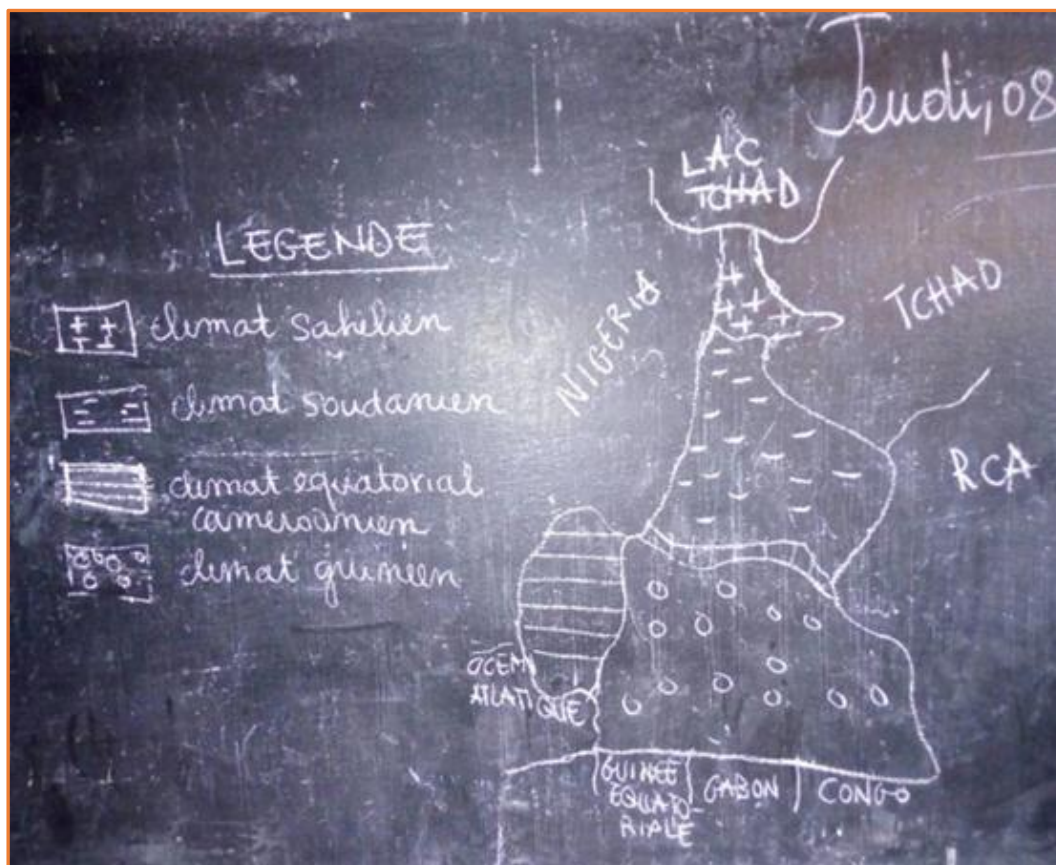 Jeudi, 08
LAC
TCHAD
LEGENDE
climat sahelien
climat soudanien
climat equatorial
camerounien
climat guineen
NIGERIA
TCHAD
RCA
OCEAN
ATLATIQUE
GUINEE
EQUATO-
RIALE
GABON
CONGO